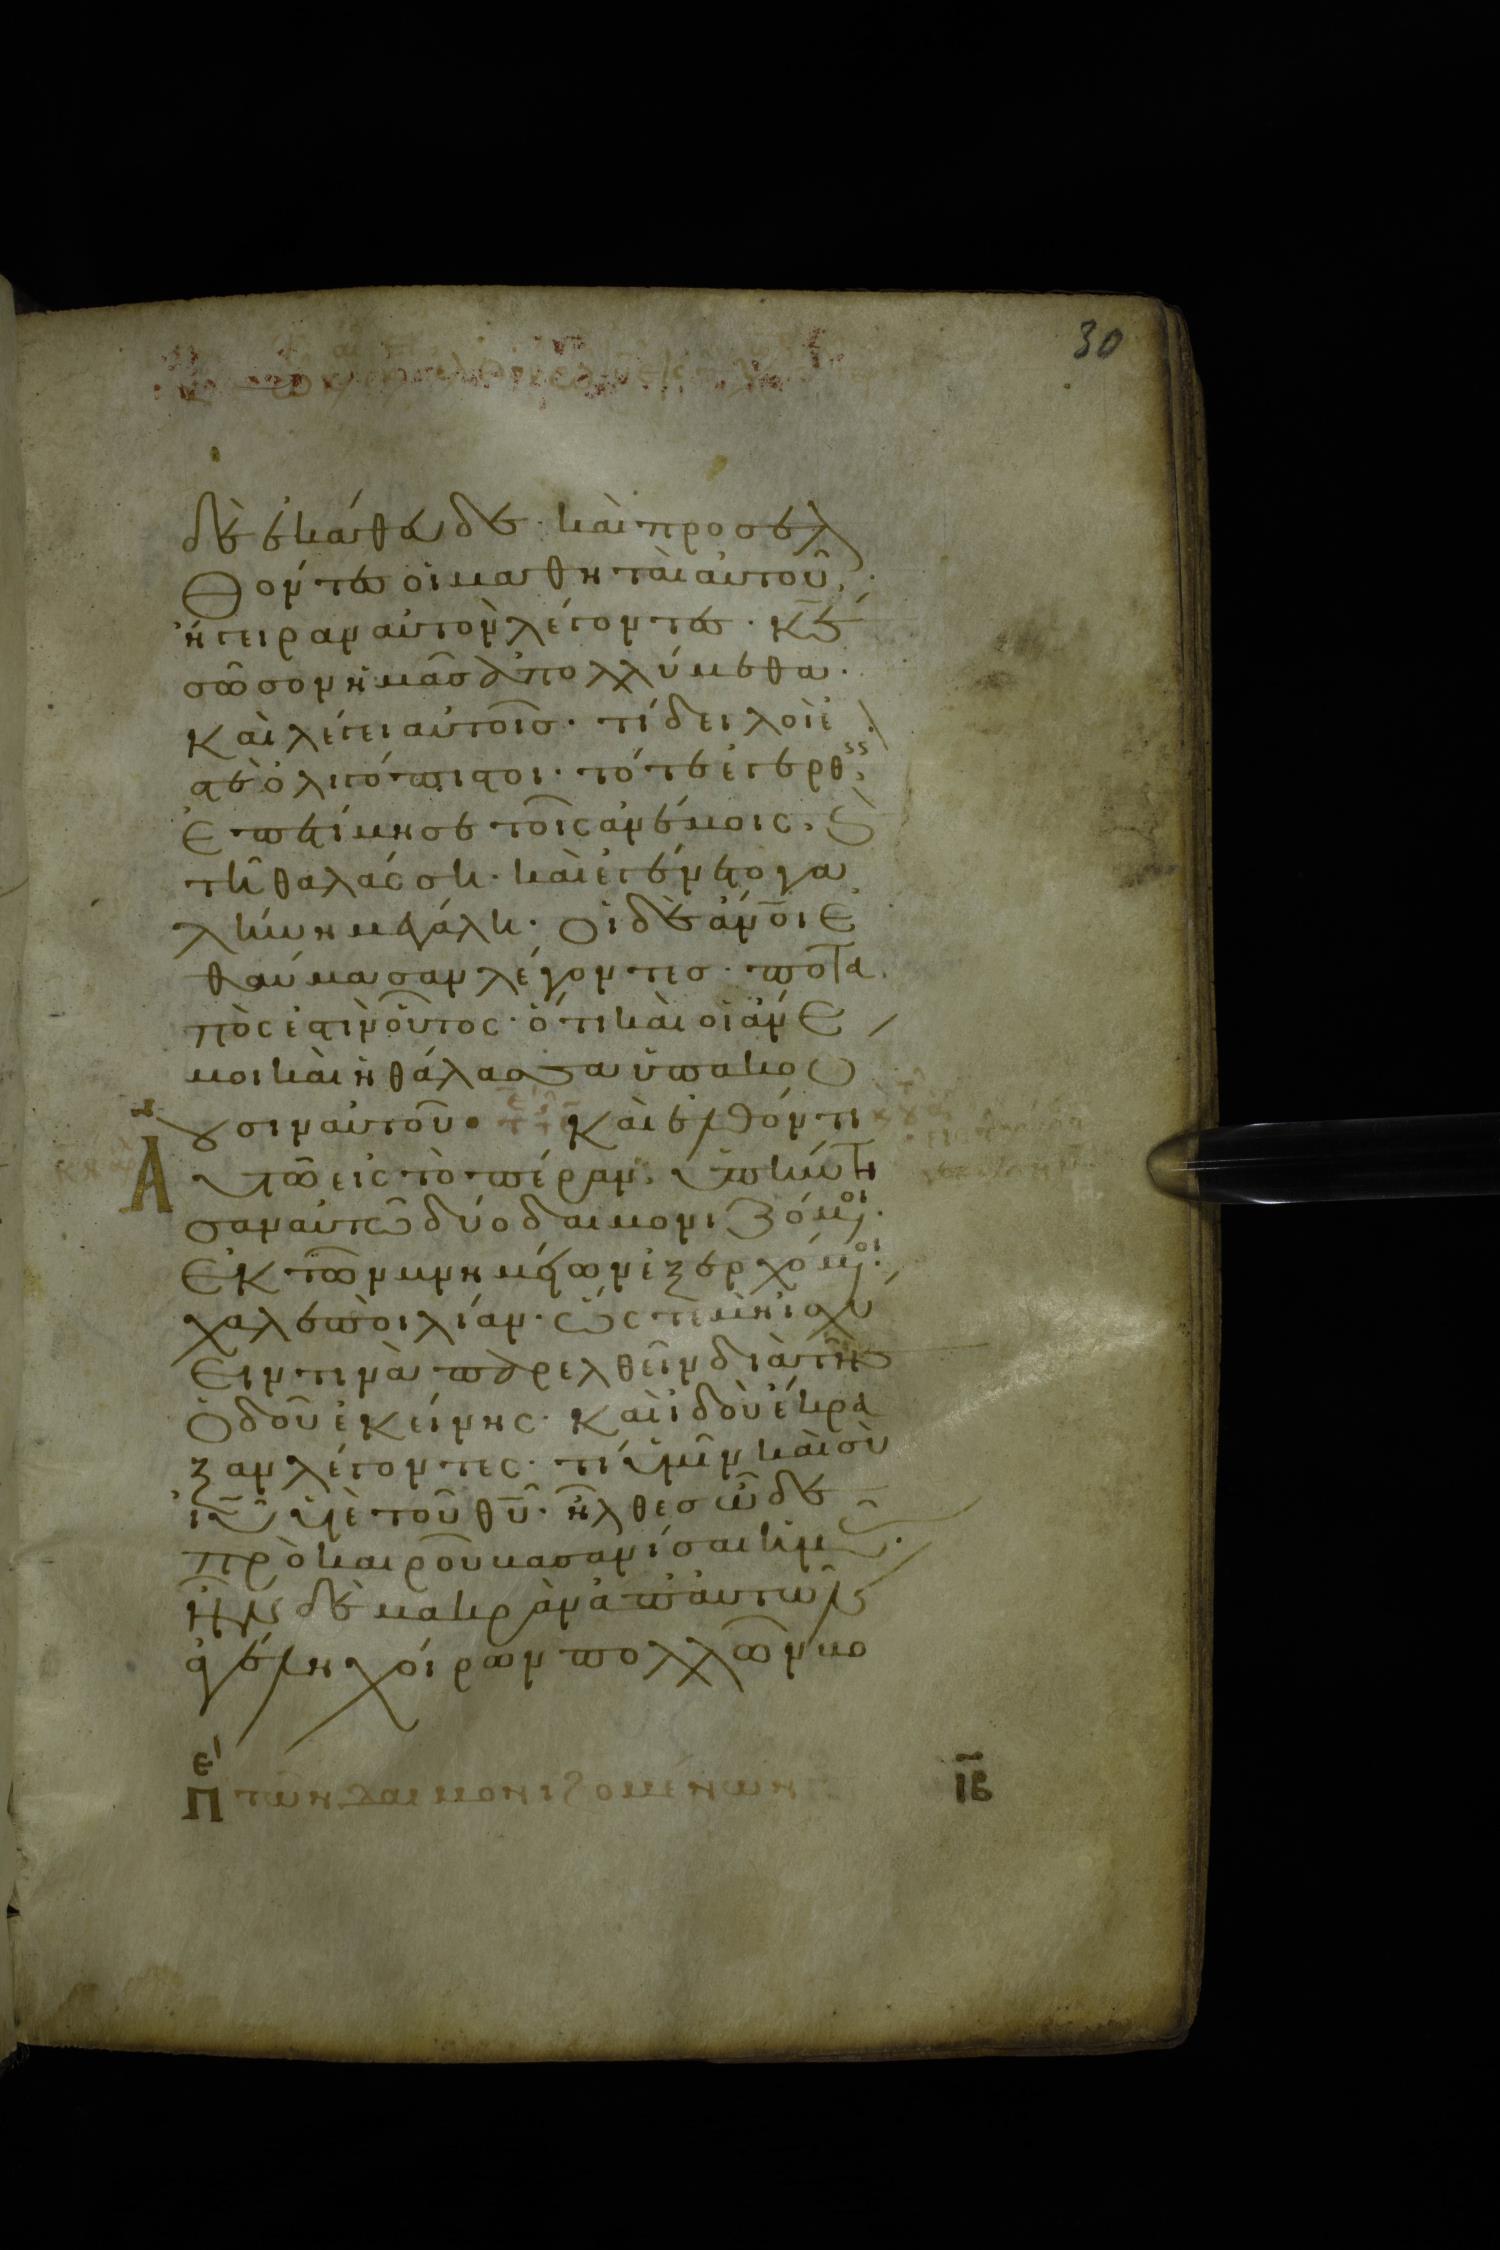 30
δὲ ἐκάθευδε· καὶ προσελ
θόντες οἱ μαθηταὶ αὐτοῦ,
ἤγειραν αὐτὸν λέγοντες· κε
σῶσον ἡμᾶς ἀπολλύμεθα·
Καὶ λέγει αὐτοῖς· τί δειλοί ἐ
στε ὀλιγόπιστοι· τότε ἐγερθεὶς,
ἐπετίμησε τοῖς ἀνέμοις, καὶ
τῆ θαλάσση· καὶ ἐγένετο γα
λήνη μεγάλη· Οἱ δὲ ἄνοι ἐ
θαύμασαν λέγοντες· ποτα
πὸς ἐστὶν οὗτος· ὅτι καὶ οἱ ἄνε
μοι καὶ ἡ θάλασσα ὑπακού
ουσιν αὐτοῦ· Καὶ ἐλθόντι
Α
αὐτῶ εἰς τὸ πέραν, ὑπήντη
σαν αὐτῶ δύο δαιμονιζόμενοι·
ἐκ τῶν μνημείων ἐξερχόμενοι·
χαλεποὶ λίαν· ὥστε μὴ ἰσχύ
ειν τινὰ παρελθεῖν διὰ τῆς
ὁδοῦ ἐκείνης· Καὶ ἰδοὺ ἔκρα
ξαν λέγοντες· τί ἡμῖν καὶ σὺ
ἰυ υἱὲ τοῦ θυ· ἦλθες ὧδε
πρὸ καιροῦ βασανίσαι ἡμᾶς·
Ἦν δὲ μακρὰν ἀπ' αὐτῶν
ἀγέλη χοίρων πολλῶν βο
ε΄
Π τῶν δαιμονιζομένων
ιβ